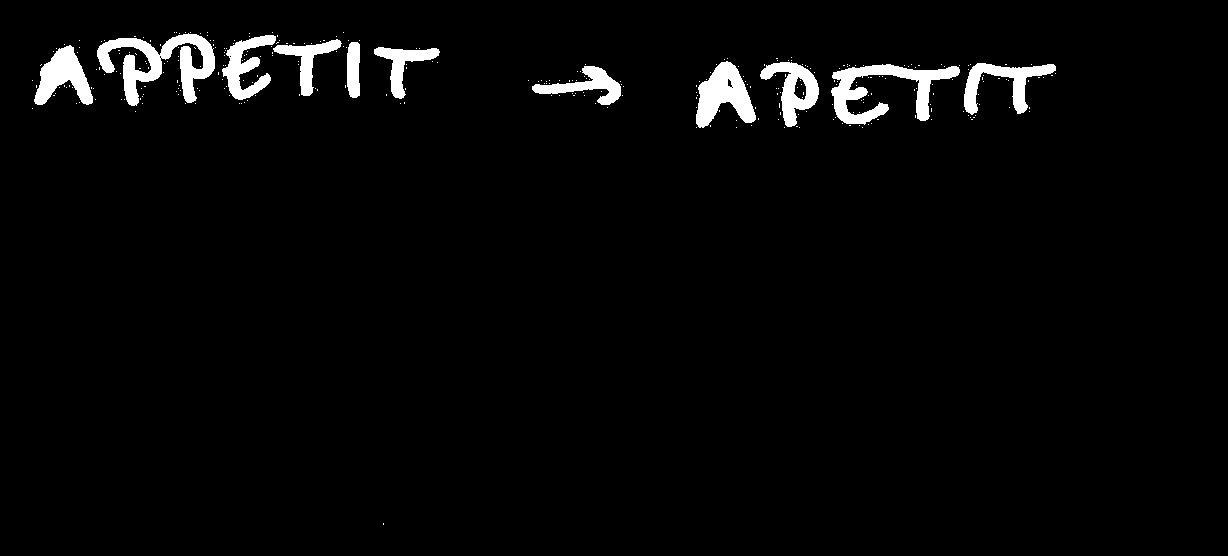 APPETIT → APETIT